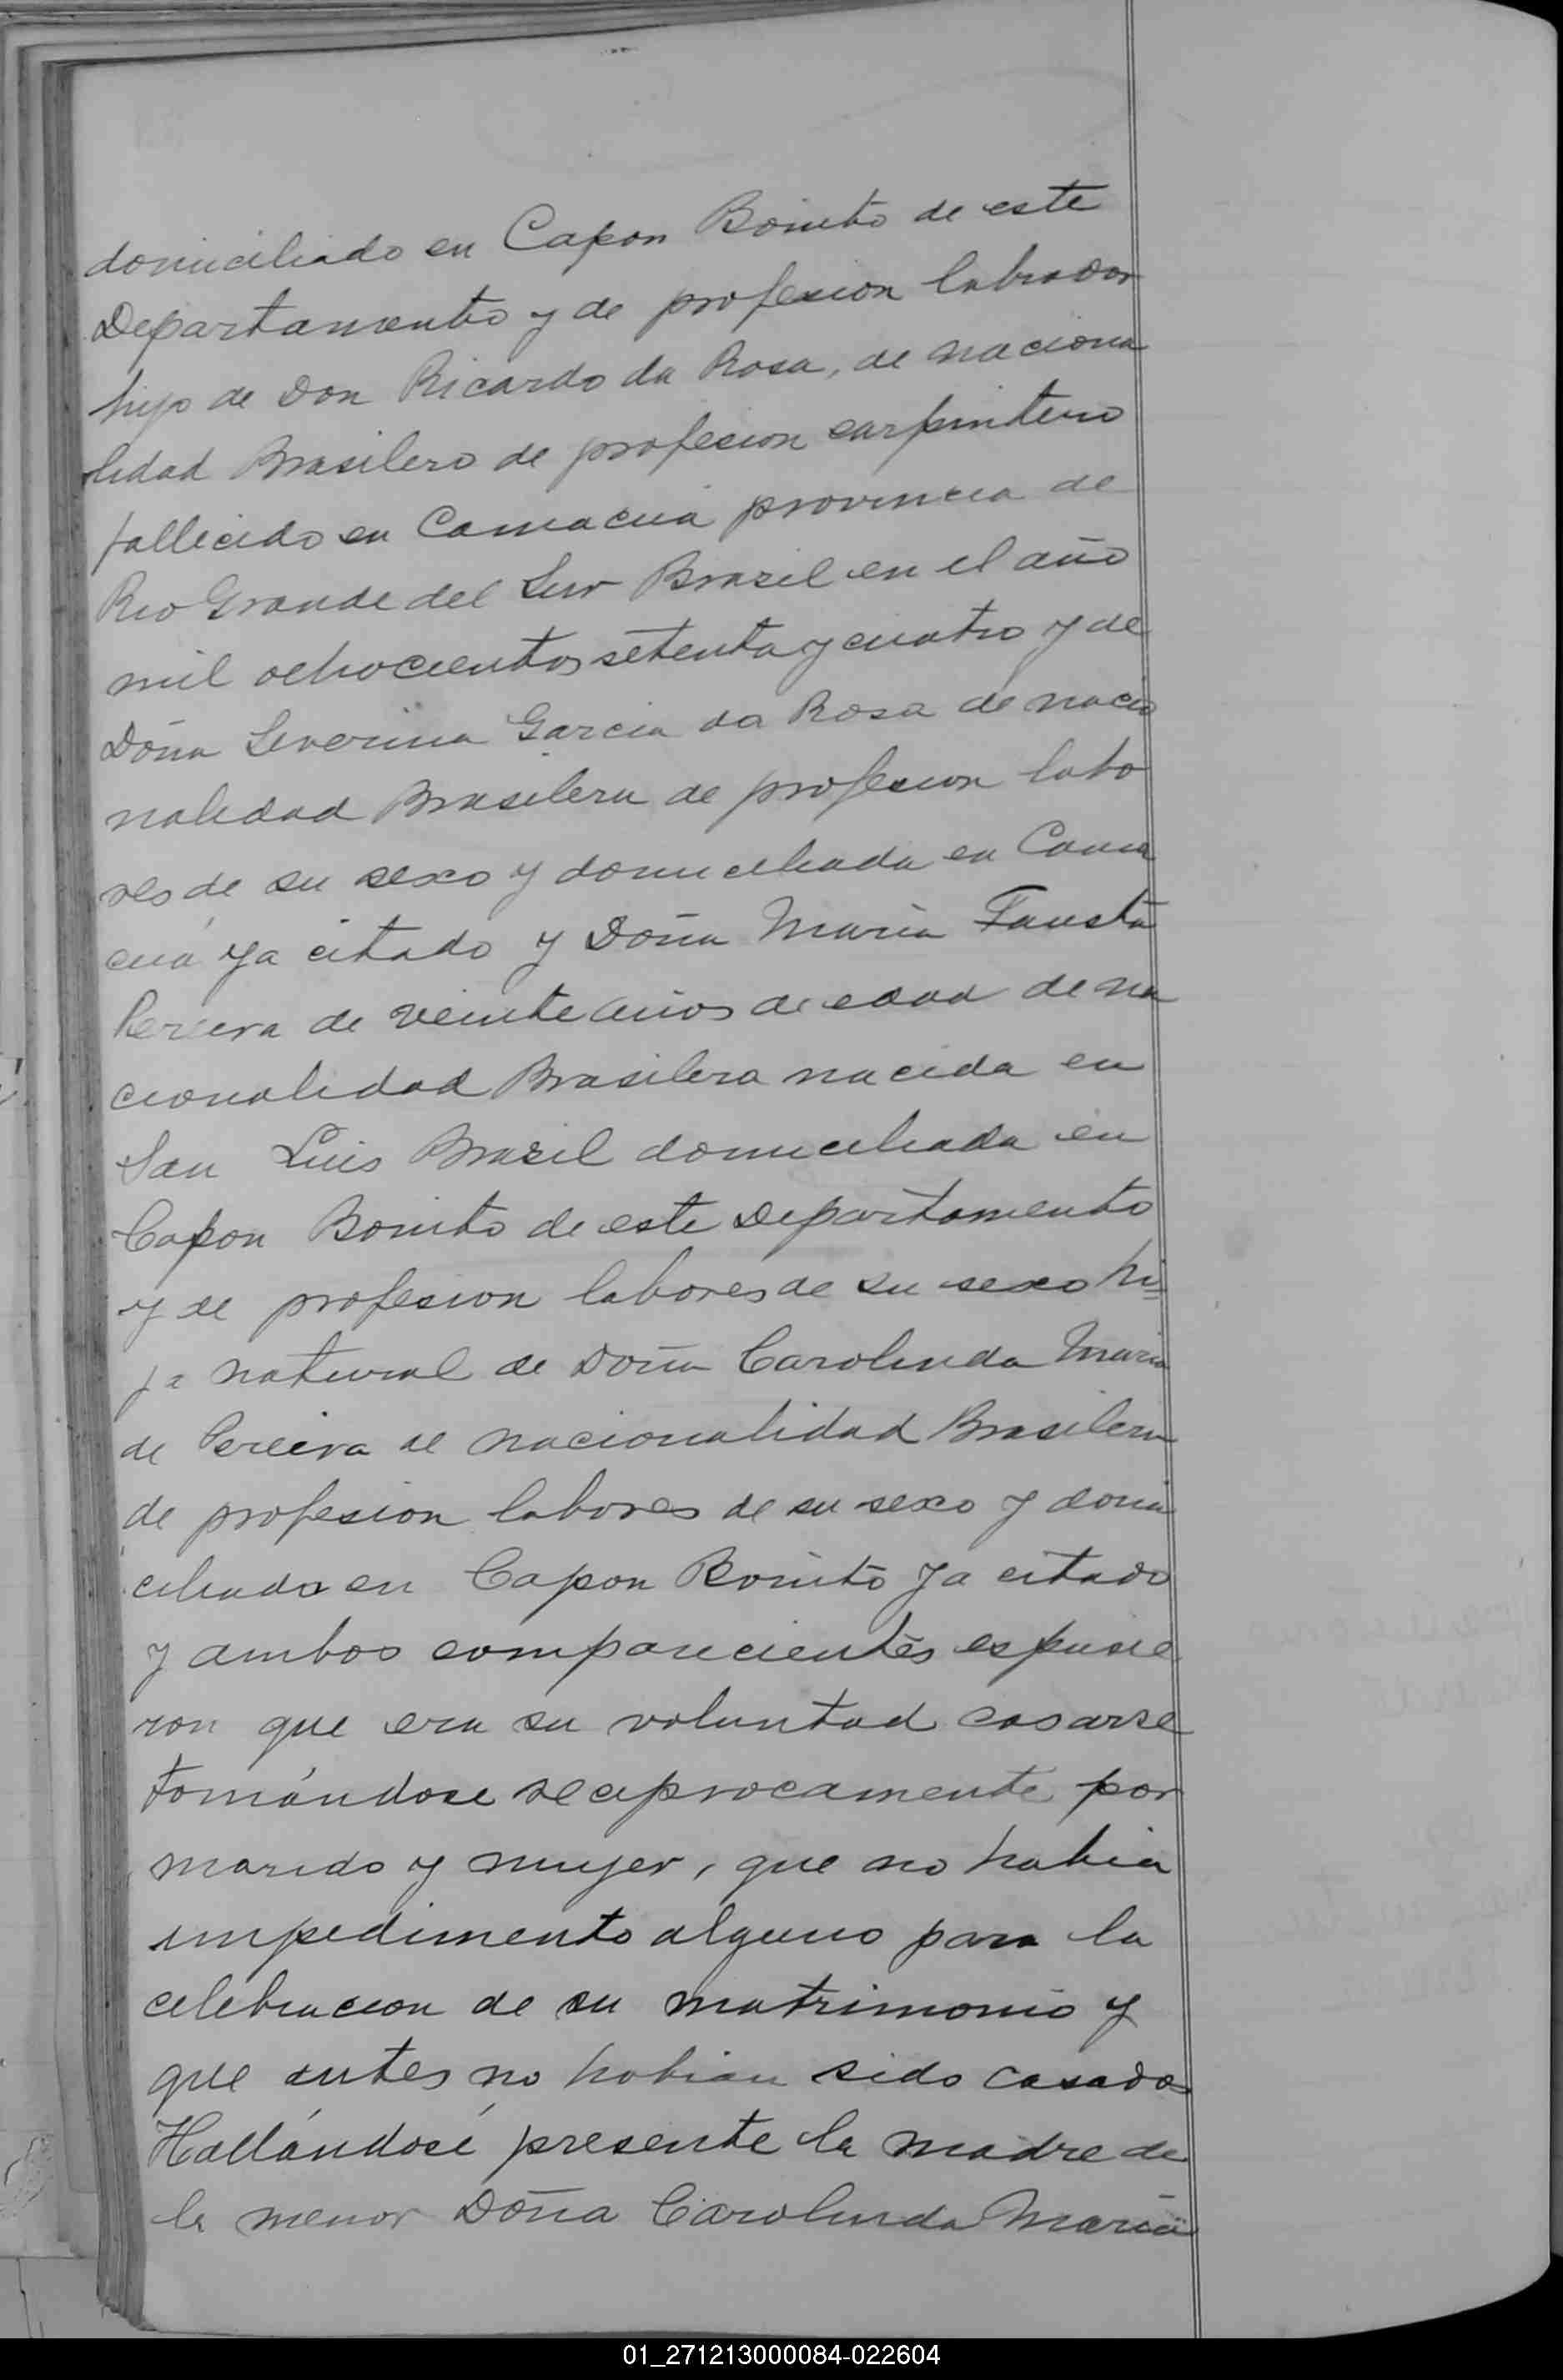 domiciliado en Capon Bonito de este
Departamento y de profesion labrador
hijo de Don Ricardo da Rosa, de naciona
lidad Brasilero de profesion carpintero
fallecido en Camacuá provincia de
Rio Grande del Sur Brazil en el año
mil ochocientos setenta y cuatro y de
Doña Severina Garcia da Rosa de nacio
nalidad Brasilera de profesion labo
res de su sexo y domiciliada en Cama
cuá ya citado y Doña Maria Fausta
Pereira de veinte años de edad de na
cionalidad Brasilera nacida en
San Luis Brazil domiciliada en
Capon Bonito de este Departamento
y de profesion labores de su sexo hi=
ja natural de Doña Carolinda Maria
de Pereira de nacionalidad Brasilera
de profesion labores de su sexo y domi
ciliada en Capon Bonito ya citado
y ambos comparecientes espusie
ron que era su voluntad casarse
tomándose reciprocamente por
marido y mujer, que no habia
impedimento alguno para la
celebracion de su matrimonio y
que antes no habian sido casados
Hallándose presente la madre de
la menor Doña Carolinda Maria
01_271213000084-022604